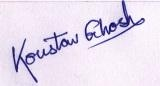 Koustav Ghosh